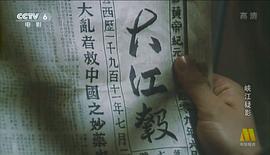 CCTV 6
电影
高清
黄帝紀元
大江報
西歷一千九百十一年七月
大亂者救中國之妙藥
峡江疑影
M